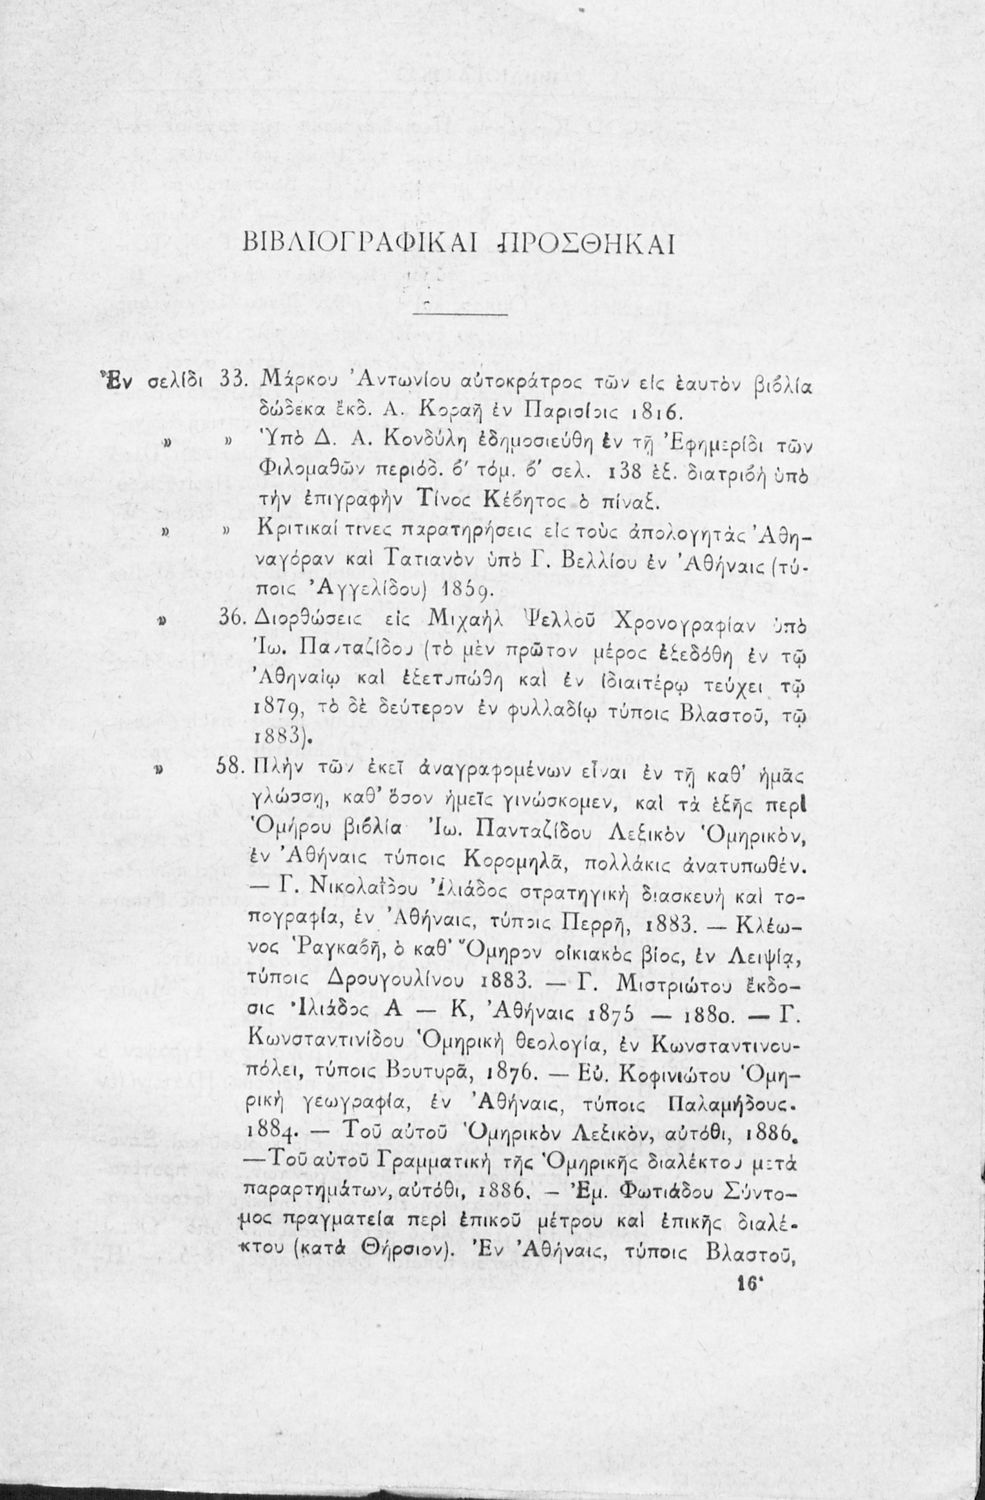 ΒΙΒΛΙΟΓΡΑΦΙΚΑΙ ΠΡΟΣΘΗΚΑΙ
Ἐν σελίδι 33. Μάρκου Ἀντωνίου αὐτοκράτρος τῶν εἰς ἑαυτὸν βιϐλία
δώδεκα ἔκδ. Α. Κοραῆ ἐν Παρισίοις 1816.
» » Ὑπὸ Δ. Α. Κονδύλη ἐδημοσιεύθη ἐν τῇ Ἐφημερίδι τῶν
Φιλομαθῶν περιόδ. ϐ′ τόμ. ϐ′ σελ. 138 ἑξ. διατριϐὴ ὑπὸ
τὴν ἐπιγραφὴν Τίνος Κέϐητος ὁ πίναξ.
» » Κριτικαί τινες παρατηρήσεις εἰς τοὺς ἀπολογητὰς Ἀθη-
ναγόραν καὶ Τατιανὸν ὑπὸ Γ. Βελλίου ἐν Ἀθήναις (τύ-
ποις Ἀγγελίδου) 1859.
» 36. Διορθώσεις εἰς Μιχαὴλ Ψελλοῦ Χρονογραφίαν ὑπὸ
Ἰω. Πανταζίδου (τὸ μὲν πρῶτον μέρος ἐξεδόθη ἐν τῷ
Ἀθηναίῳ καὶ ἐξετυπώθη καὶ ἐν ἰδιαιτέρῳ τεύχει τῷ
1879, τὸ δὲ δεύτερον ἐν φυλλαδίῳ τύποις Βλαστοῦ, τῷ
1883).
» 58. Πλὴν τῶν ἐκεῖ ἀναγραφομένων εἶναι ἐν τῇ καθ' ἡμᾶς
γλώσσῃ, καθ' ὅσον ἡμεῖς γινώσκομεν, καὶ τὰ ἑξῆς περὶ
Ὁμήρου βιϐλία· Ἰω. Πανταζίδου Λεξικὸν Ὁμηρικὸν,
ἐν Ἀθήναις τύποις Κορομηλᾶ, πολλάκις ἀνατυπωθέν.
— Γ. Νικολαΐδου Ἰλιάδος στρατηγικὴ διασκευὴ καὶ το-
πογραφία, ἐν Ἀθήναις, τύποις Περρῆ, 1883. — Κλέω-
νος Ῥαγκαϐῆ, ὁ καθ' Ὅμηρον οἰκιακὸς βίος, ἐν Λειψίᾳ,
τύποις Δρουγουλίνου 1883. — Γ. Μιστριώτου ἔκδο-
σις Ἰλιάδος Α — Κ, Ἀθήναις 1875 — 1880. — Γ.
Κωνσταντινίδου Ὁμηρικὴ θεολογία, ἐν Κωνσταντινου-
πόλει, τύποις Βουτυρᾶ, 1876. — Εὐ. Κοφινιώτου Ὁμη-
ρικὴ γεωγραφία, ἐν Ἀθήναις, τύποις Παλαμήδους.
1884. — Τοῦ αὐτοῦ Ὁμηρικὸν Λεξικὸν, αὐτόθι, 1886.
— Τοῦ αὐτοῦ Γραμματικὴ τῆς Ὁμηρικῆς διαλέκτου μετὰ
παραρτημάτων, αὐτόθι, 1886. — Ἐμ. Φωτιάδου Σύντο-
μος πραγματεία περὶ ἐπικοῦ μέτρου καὶ ἐπικῆς διαλέ-
κτου (κατὰ Θήρσιον). Ἐν Ἀθήναις, τύποις Βλαστοῦ,
16*